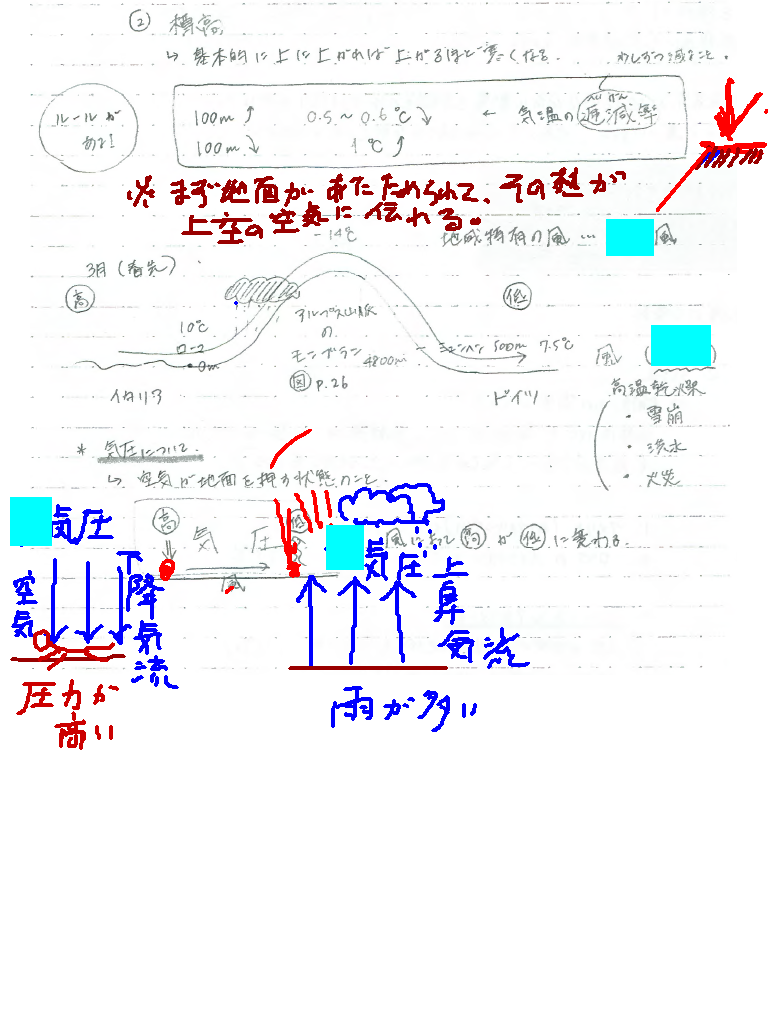 ② 標高
↳ 基本的に上に上がれば上がるほど寒くなる。
少しずつ減ること。
ルールが
ある!
100m↑ 0.5～0.6℃↘ ← 気温の逓減率
ていげん
100m↓ 1℃↑
※ まず地面があたためられて、その熱が
上空の空気に伝れる。
地域特有の風… 風
-14℃
3月(春先)
高
低
10℃
0m
アルプス山脈
の
モンブラン
4800m
図 P.26
ミュンヘン 500m 7.5℃
イタリア
ドイツ
風 (
高温乾燥
・雪崩
・洪水
・火災
* 気圧について
↳ 空気が地面を押す状態のこと。
気圧
高 気圧 低
風
風によって 高 が 低 に変わる。
空気
下降気流
圧力が
高い
気圧
上昇気流
雨が多い